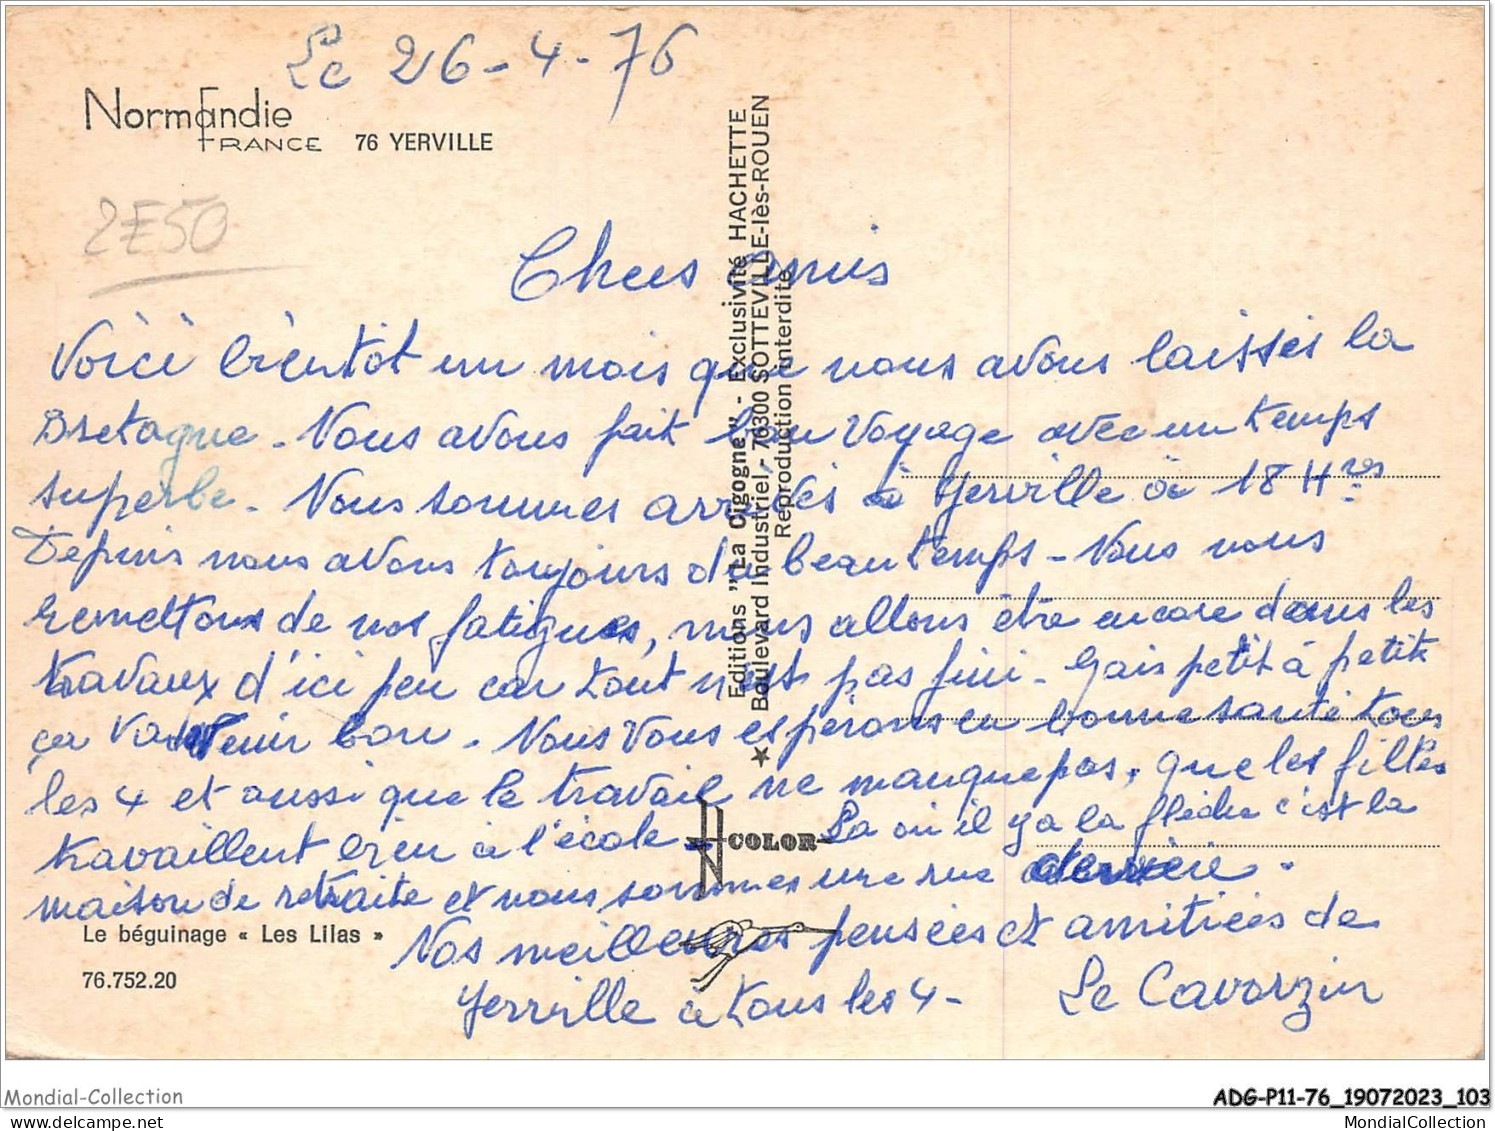 Le 26-4-76
Normandie
FRANCE 76 YERVILLE
2E50
Chers amis
Voici bientôt un mois que nous avons laissés la
Bretagne. Nous avons fait bon voyage avec un temps
superbe. Nous sommes arrivés à Yerville à 18 Hres
Depuis nous avons toujours du beau temps - Nous nous
remettons de nos fatigues, nous allons être encore dans les
travaux d'ici peu car tout n'est pas fini - Mais petit à petit
ça va venir bon. Nous vous espérons en bonne santé tous
les 4 et aussi que le travail ne manque pas, que les filles
travaillent bien à l'école. Là où il y a la flèche c'est la
maison de retraite et nous sommes une rue derrière.
Nos meilleures pensées et amitiées de
Yerville à tous les 4 - Le Cavorzin
Editions "La Cigogne" - Exclusivité HACHETTE
Boulevard Industriel, 76300 SOTTEVILLE-lès-ROUEN
Reproduction interdite
COLOR
Le béguinage « Les Lilas »
76.752.20
Mondial-Collection
Mondial-Collection.com
ADG-P11-76_19072023_103
MondialCollection